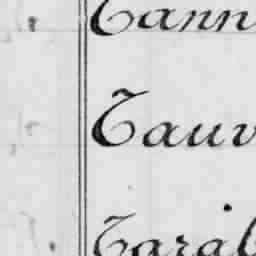 Tann
Tauv
Tarab